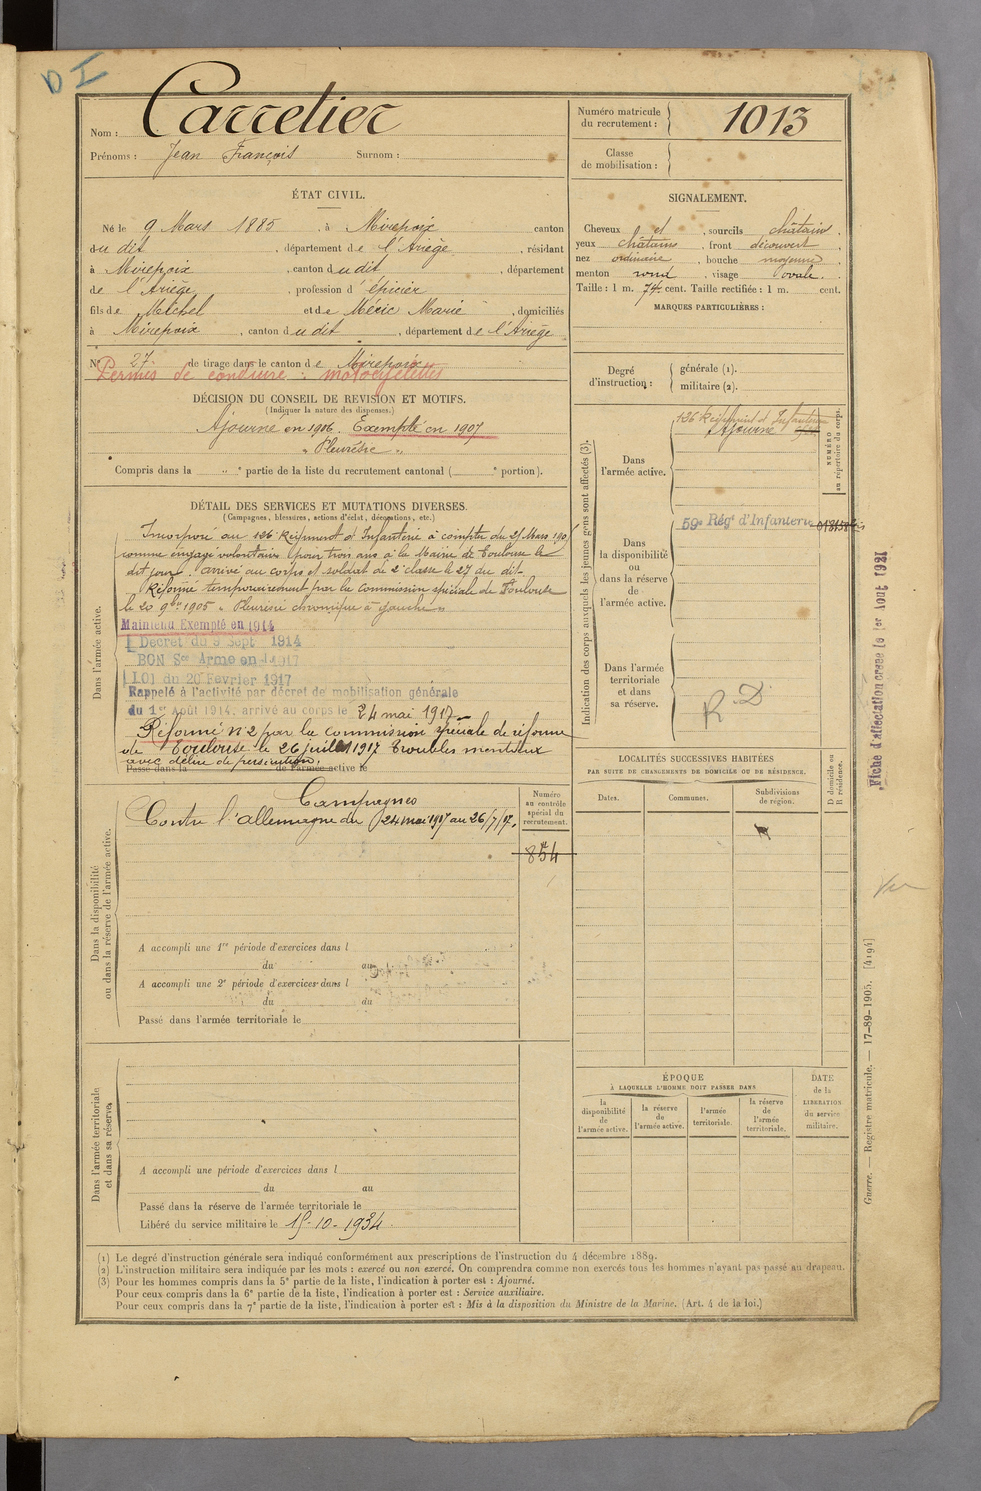 D I
Nom : Carretier
Prénoms : Jean François Surnom :
Numéro matricule
du recrutement : 1013
Classe
de mobilisation :
ÉTAT CIVIL.
Né le 9 Mars 1885, à Mirepoix canton
du dit, département de l'Ariège, résidant
à Mirepoix, canton du dit, département
de l'Ariège, profession d'épicier
fils de Michel et de Méric Marie, domiciliés
à Mirepoix, canton du dit, département de l'Ariège
N° 27 de tirage dans le canton de Mirepoix
Permis de conduire : motocyclettes
DÉCISION DU CONSEIL DE REVISION ET MOTIFS.
(Indiquer la nature des dispenses.)
Ajourné en 1906. Exempté en 1907
" Pleurésie "
Compris dans la " " partie de la liste du recrutement cantonal ( ° portion).
SIGNALEMENT.
Cheveux et, sourcils châtains.
yeux châtains, front découvert,
nez ordinaire, bouche moyenne,
menton rond, visage ovale.
Taille : 1 m. 74 cent. Taille rectifiée : 1 m. cent.
MARQUES PARTICULIÈRES :
Degré
d'instruction :
générale (1).
militaire (2).
DÉTAIL DES SERVICES ET MUTATIONS DIVERSES.
(Campagnes, blessures, actions d'éclat, décorations, etc.)
Dans l'armée active.
Incorporé au 126e Régiment d'Infanterie à compter du 25 Mars 190
comme engagé volontaire pour trois ans à la Mairie de Toulouse le
dit jour. arrivé au corps et soldat de 2e classe le 27 du dit.
Réformé temporairement par la commission spéciale de Toulouse
le 20 9bre 1905 " Pleurésie chronique à gauche "
Maintenu Exempté en 1914
Décret du 9 Sept 1914
BON Sce Armé en 1917
LOI du 20 Fevrier 1917
Rappelé à l'activité par décret de mobilisation générale
du 1er Août 1914, arrivé au corps le 24 mai 1917
Réformé n°2 par la commission spéciale de réforme
de Toulouse le 26 juillet 1917 Troubles mentaux
avec délire de persécution.
Passé dans la de l'armée active le
Indication des corps auxquels les jeunes gens sont affectés (3).
NUMÉRO
au répertoire du corps.
Dans
l'armée active.
126 Régiment d'Infanterie
Ajourné
Dans
la disponibilité
ou
dans la réserve
de
l'armée active.
59e Régt d'Infanterie
Dans l'armée
territoriale
et dans
sa réserve.
R. D.
Fiche d'affectation créée le 1er Août 1921
Dans la disponibilité
ou dans la réserve de l'armée active.
Campagnes
Contre l'allemagne du 24 mai 1917 au 26/7/17.
Numéro
au contrôle
spécial du
recrutement.
854
A accompli une 1re période d'exercices dans l
du au
A accompli une 2e période d'exercices dans l
du du
Passé dans l'armée territoriale le
LOCALITÉS SUCCESSIVES HABITÉES
PAR SUITE DE CHANGEMENTS DE DOMICILE OU DE RÉSIDENCE.
Dates.
Communes.
Subdivisions
de région.
D domicile ou
R résidence.
Dans l'armée territoriale
et dans sa réserve.
A accompli une période d'exercices dans l
du au
Passé dans la réserve de l'armée territoriale le
Libéré du service militaire le 15-10-1934
ÉPOQUE
À LAQUELLE L'HOMME DOIT PASSER DANS
la
disponibilité
de
l'armée active.
la réserve
de
l'armée active.
l'armée
territoriale.
la réserve
de
l'armée
territoriale.
DATE
de la
LIBÉRATION
du service
militaire.
Guerre. — Registre matricule. — 17-89-1905. [4194]
(1) Le degré d'instruction générale sera indiqué conformément aux prescriptions de l'instruction du 4 décembre 1889.
(2) L'instruction militaire sera indiquée par les mots : exercé ou non exercé. On comprendra comme non exercés tous les hommes n'ayant pas passé au drapeau.
(3) Pour les hommes compris dans la 5e partie de la liste, l'indication à porter est : Ajourné.
Pour ceux compris dans la 6e partie de la liste, l'indication à porter est : Service auxiliaire.
Pour ceux compris dans la 7e partie de la liste, l'indication à porter est : Mis à la disposition du Ministre de la Marine. (Art. 4 de la loi.)